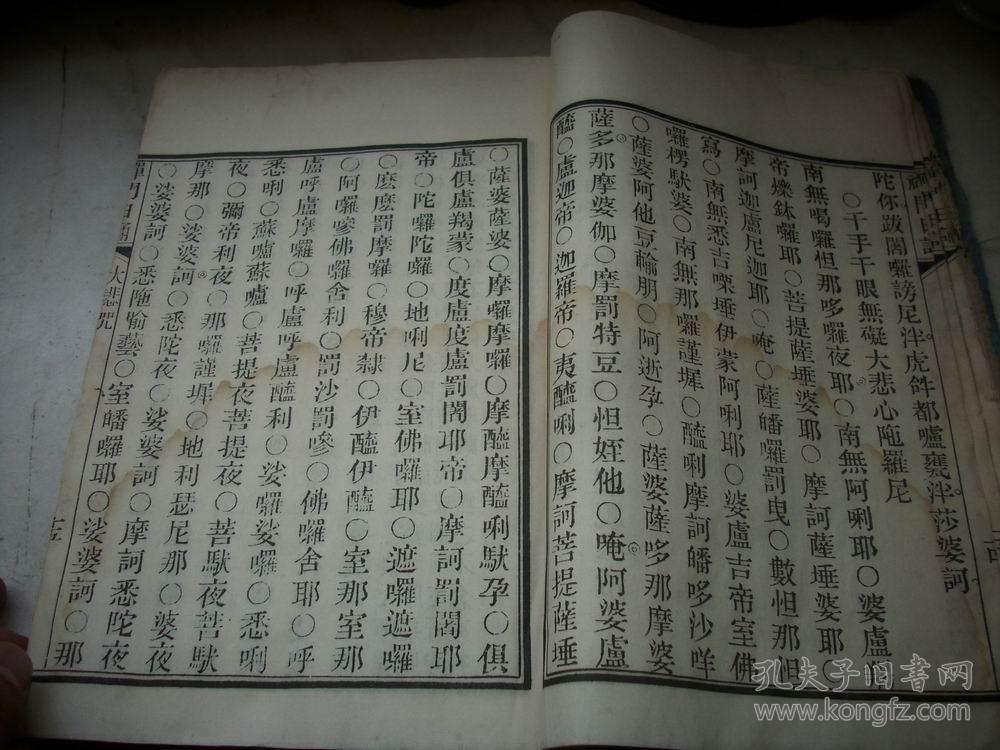 陀你跋闍囉謗尼泮。虎𤙖都嚧甕泮。莎婆訶
○千手千眼無礙大悲心陁羅尼
南無喝囉但那哆囉夜耶○南無阿唎耶○婆盧
帝爍鉢囉耶○菩提薩埵婆耶○摩訶薩埵婆耶○
摩訶迦盧尼迦耶○唵○薩皤囉罰曳○數怛那怛
寫○南無悉吉㗚埵伊蒙阿唎耶○婆盧吉帝室佛
囉楞馱婆○南無那囉謹墀○醯唎摩訶皤哆沙咩
○薩婆阿他豆輸朋○阿逝孕○薩婆薩哆那摩婆
薩多那摩婆伽○摩罰特豆○怛姪他○唵○阿婆盧
醯○盧迦帝○迦羅帝○夷醯唎○摩訶菩提薩埵
○薩婆薩婆○摩囉摩囉○摩醯摩醯唎馱孕○俱
盧俱盧羯蒙○度盧度盧罰闍耶帝○摩訶罰闍耶
帝○陀囉陀囉○地唎尼○室佛囉耶○遮囉遮囉
○麼麼罰摩囉○穆帝隸○伊醯伊醯○室那室那
○阿囉嘇佛囉舍利○罰沙罰嘇○佛囉舍耶○呼
盧呼盧摩囉○呼盧呼盧醯利○娑囉娑囉○悉唎
悉唎○蘇嚧蘇嚧○菩提夜菩提夜○菩馱夜菩馱
夜○彌帝利夜○那囉謹墀○地利瑟尼那○婆夜
摩那○娑婆訶○悉陀夜○娑婆訶○摩訶悉陀夜
○娑婆訶○悉陁喻藝○室皤囉耶○娑婆訶○那
禪門日誦
大悲咒
孔夫子旧书网
www.kongfz.com